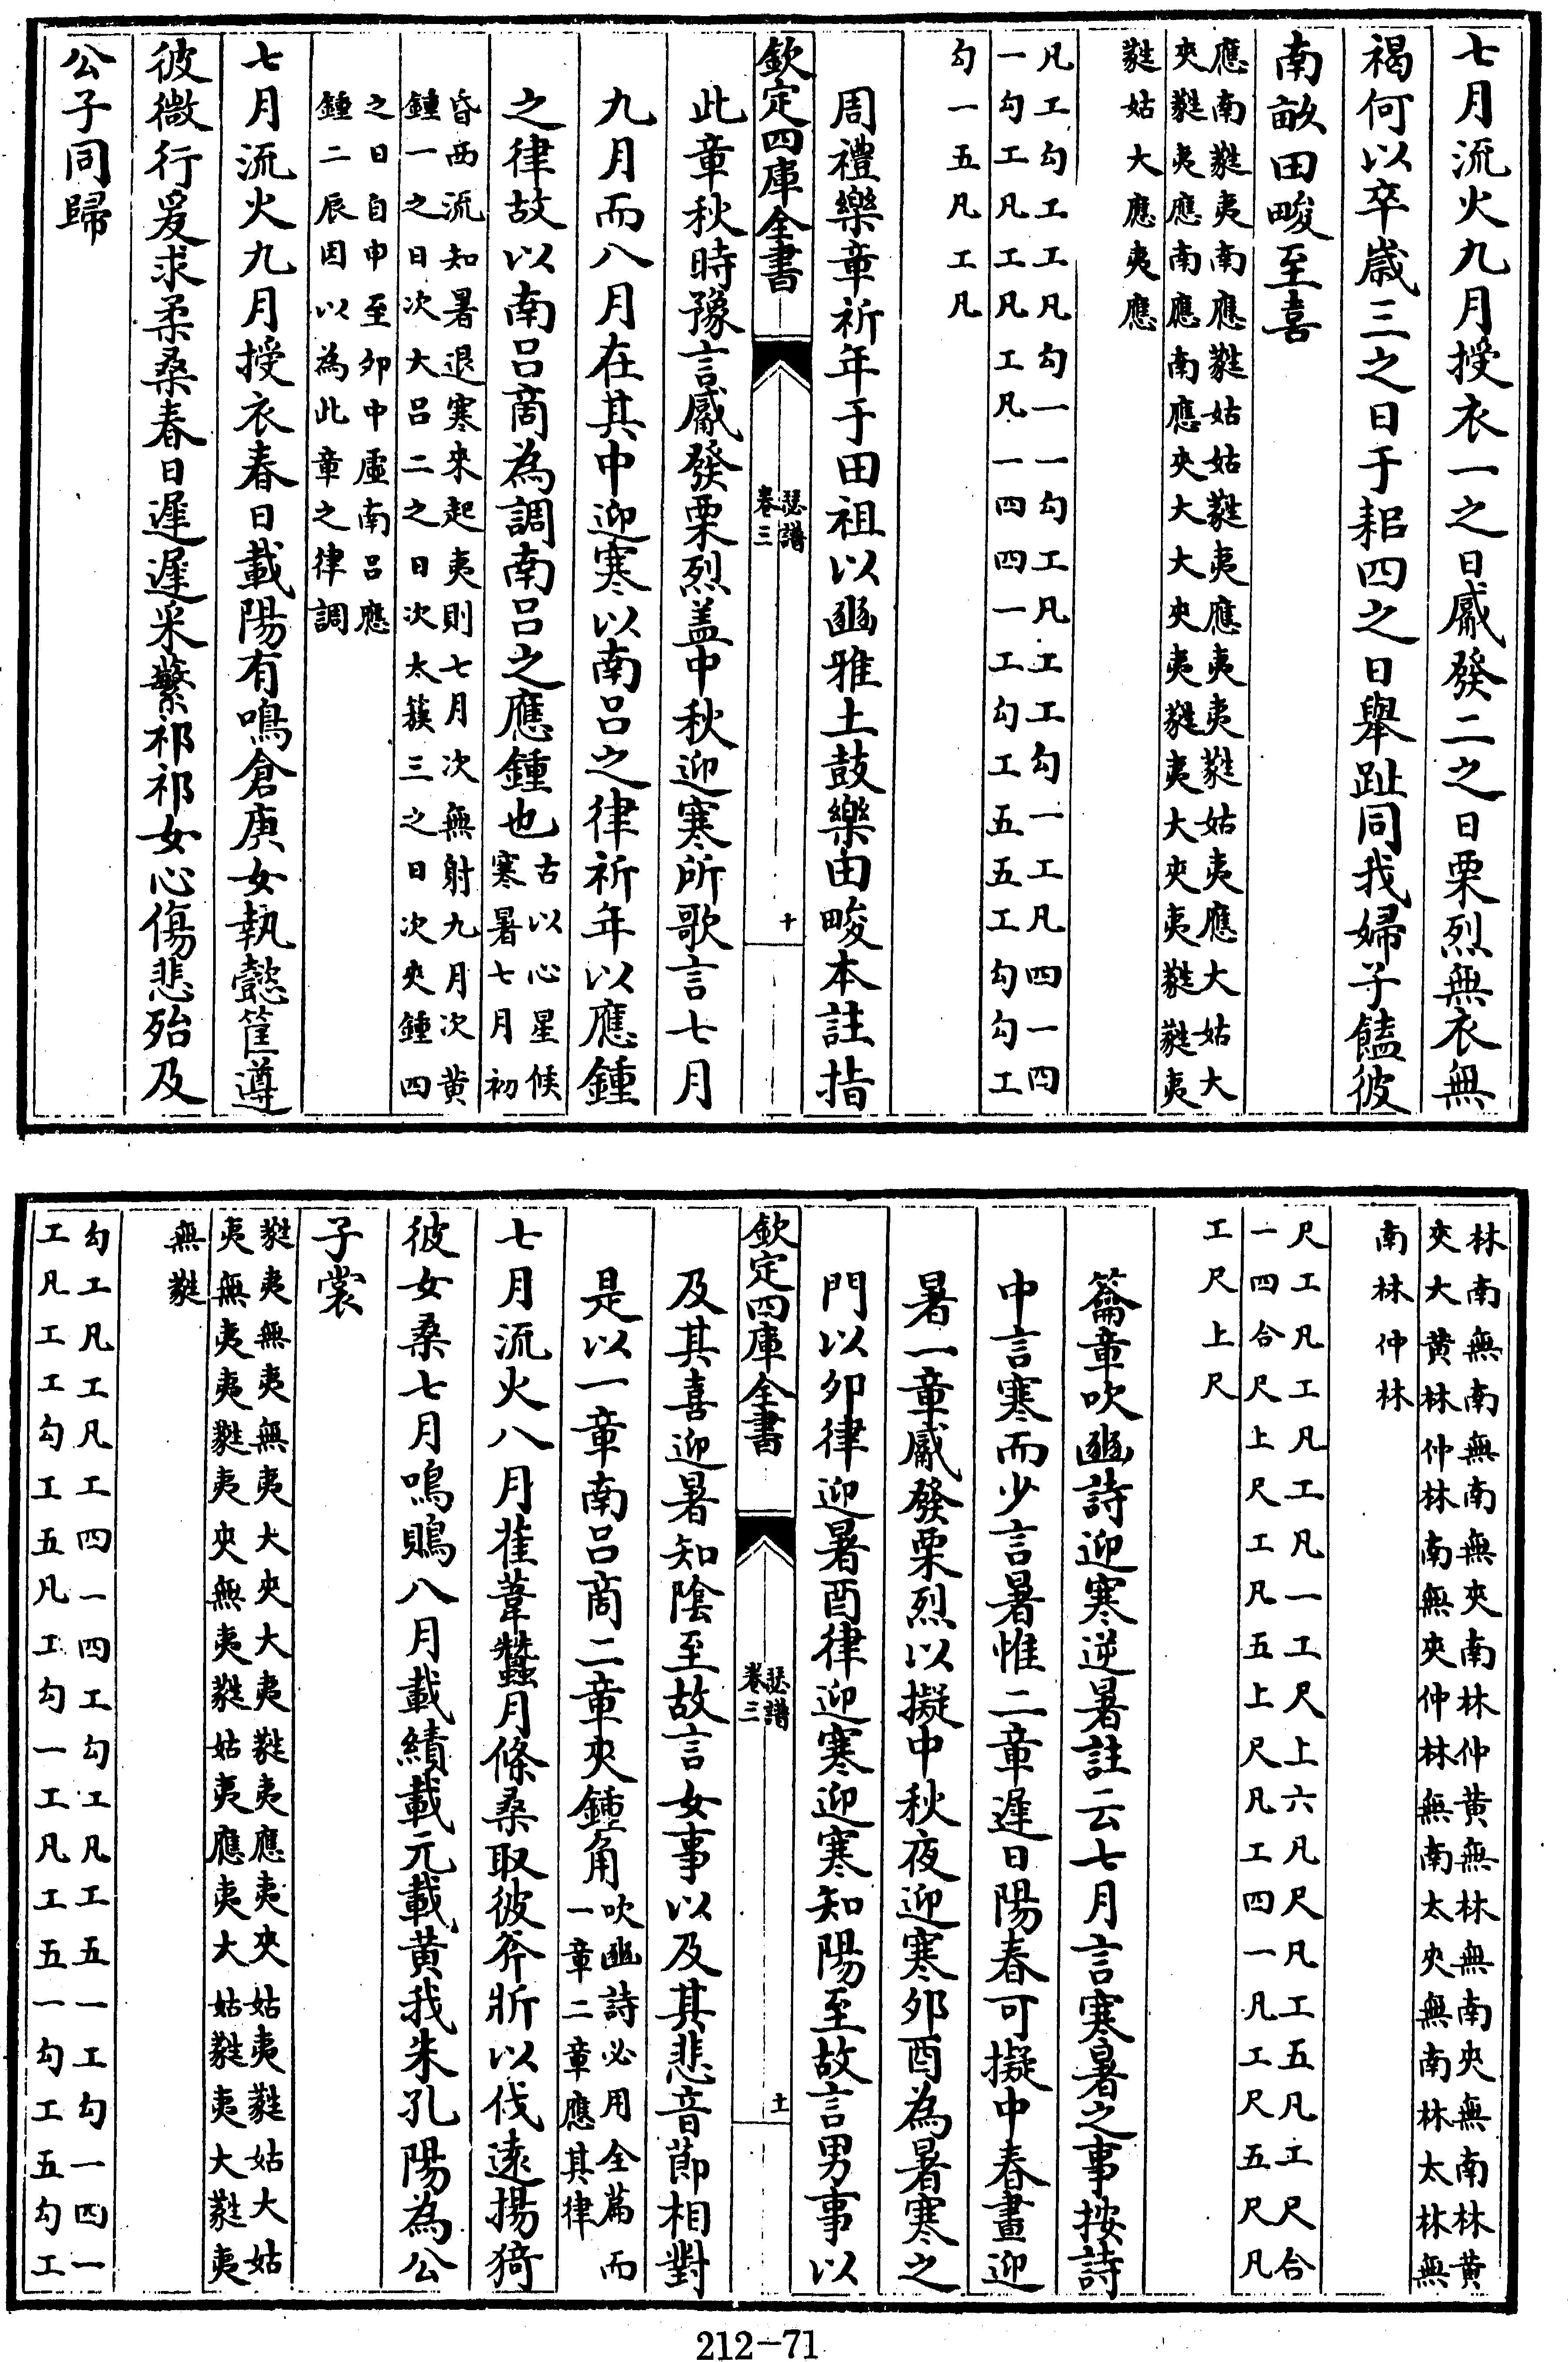 七月流火九月授衣一之日觱發二之日栗烈無衣無
褐何以卒歲三之日于耜四之日舉趾同我婦子饁彼
南畝田畯至喜
應南蕤夷南應蕤姑姑蕤夷應夷夷蕤姑夷應大姑大
夾蕤夷應南應南應夾大大夾夷蕤夷大夾夷蕤蕤夷
蕤姑大應夷應
凡工勾工工凡勾一一勾工凡工工勾一工凡四一四
一勾工凡工凡工凡一四四一工勾工五五工勾勾工
勾一五凡工凡
周禮樂章祈年于田祖以豳雅土鼓樂田畯本註指
欽定四庫全書
瑟譜
卷三
十
此章秋時豫言觱發栗烈盖中秋迎寒所歌言七月
九月而八月在其中迎寒以南呂之律祈年以應鍾
之律故以南呂商為調南呂之應鍾也
古以心星候
寒暑七月初
昏西流知暑退寒来起夷則七月次無射九月次黄
鍾一之日次大呂二之日次太簇三之日次夾鍾四
之日自申至卯中虛南呂應
鍾二辰因以為此章之律調
七月流火九月授衣春日載陽有鳴倉庚女執懿筐遵
彼微行爰求柔桑春日遲遲采蘩祁祁女心傷悲殆及
公子同歸
林南無南無南無夾南林仲黄無林無南夾無南林黄
夾大黄林仲林南無夾仲林無南太夾無南林太林無
南林仲林
尺工凡工凡工凡一工尺上六凡尺凡工五凡工尺合
一四合尺上尺工凡五上尺凡工四一凡工尺五尺凡
工尺上尺
籥章吹豳詩迎寒逆暑註云七月言寒暑之事按詩
中言寒而少言暑惟二章遲日陽春可擬中春晝迎
暑一章觱發栗烈以擬中秋夜迎寒卯酉為暑寒之
門以卯律迎暑酉律迎寒迎寒知陽至故言男事以
欽定四庫全書
瑟譜
卷三
十一
及其喜迎暑知陰至故言女事以及其悲音節相對
是以一章南呂商二章夾鍾角
吹豳詩必用全篇而
一章二章應其律
七月流火八月萑葦蠶月條桑取彼斧斨以伐遠揚猗
彼女桑七月鳴鵙八月載績載元載黄我朱孔陽為公
子裳
蕤夷無夷無夷大夾大夷蕤夷應夷夾姑夷蕤姑大姑
夷無夷夷蕤夷夾無夷蕤姑夷應夷大姑蕤夷大蕤夷
無蕤
勾工凡工凡工四一四工勾工凡工五一工勾一四一
工凡工工勾工五凡工勾一工凡工五一勾工五勾工
212-71